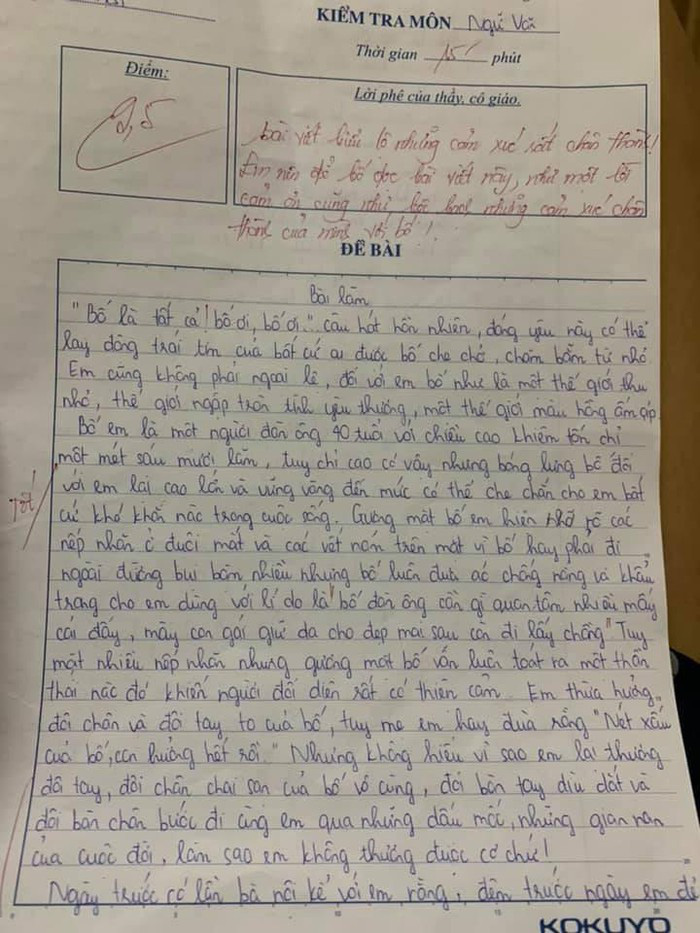 KIỂM TRA MÔN Ngữ Văn
Thời gian 15' phút
Điểm:
Lời phê của thầy, cô giáo.
9,5
bài viết biểu lộ những cảm xúc rất chân thành!
Em nên để bố đọc bài viết này, như một lời
cảm ơn cũng như những cảm xúc chân
thành của mình với bố!
ĐỀ BÀI
Bài làm
"Bố là tất cả! bố ơi, bố ơi..." câu hát hồn nhiên, đáng yêu này có thể
lay động trái tim của bất cứ ai được bố che chở, chăm bẵm từ nhỏ.
Em cũng không phải ngoại lệ, đối với em bố như là một thế giới thu
nhỏ, thế giới ngập tràn tình yêu thương, một thế giới màu hồng ấm áp
Bố em là một người đàn ông 40 tuổi với chiều cao khiêm tốn chỉ
một mét sáu mươi lăm, tuy chỉ cao có vậy nhưng bóng lưng bố đối
Tốt!
với em lại cao lớn và vững vàng đến mức có thể che chắn cho em bất
cứ khó khăn nào trong cuộc sống. Gương mặt bố em hiện rõ các
nếp nhăn ở đuôi mắt và các vết nám trên mặt vì bố hay phải đi
ngoài đường bụi bẩn nhiều nhưng bố luôn đưa áo chống nắng và khẩu
trang cho em dùng với lí do là "bố đàn ông cần gì quan tâm nhiều mấy
cái đấy, mày con gái giữ da cho đẹp mai sau còn đi lấy chồng" Tuy
mặt nhiều nếp nhăn nhưng gương mặt bố vẫn luôn toát ra một thần
thái nào đó khiến người đối diện rất có thiện cảm. Em thừa hưởng
đôi chân và đôi tay to của bố, tuy mẹ em hay đùa rằng "Nét xấu
của bố, con hưởng hết rồi." Nhưng không hiểu vì sao em lại thương
đôi tay, đôi chân chai sạn của bố vô cùng, đôi bàn tay dìu dắt và
đôi bàn chân bước đi cùng em qua những dấu mốc, những gian nan
của cuộc đời, làm sao em không thương được cơ chứ!
Ngày trước có lần bà nội kể với em rằng, đêm trước ngày em đẻ
KOKUYO